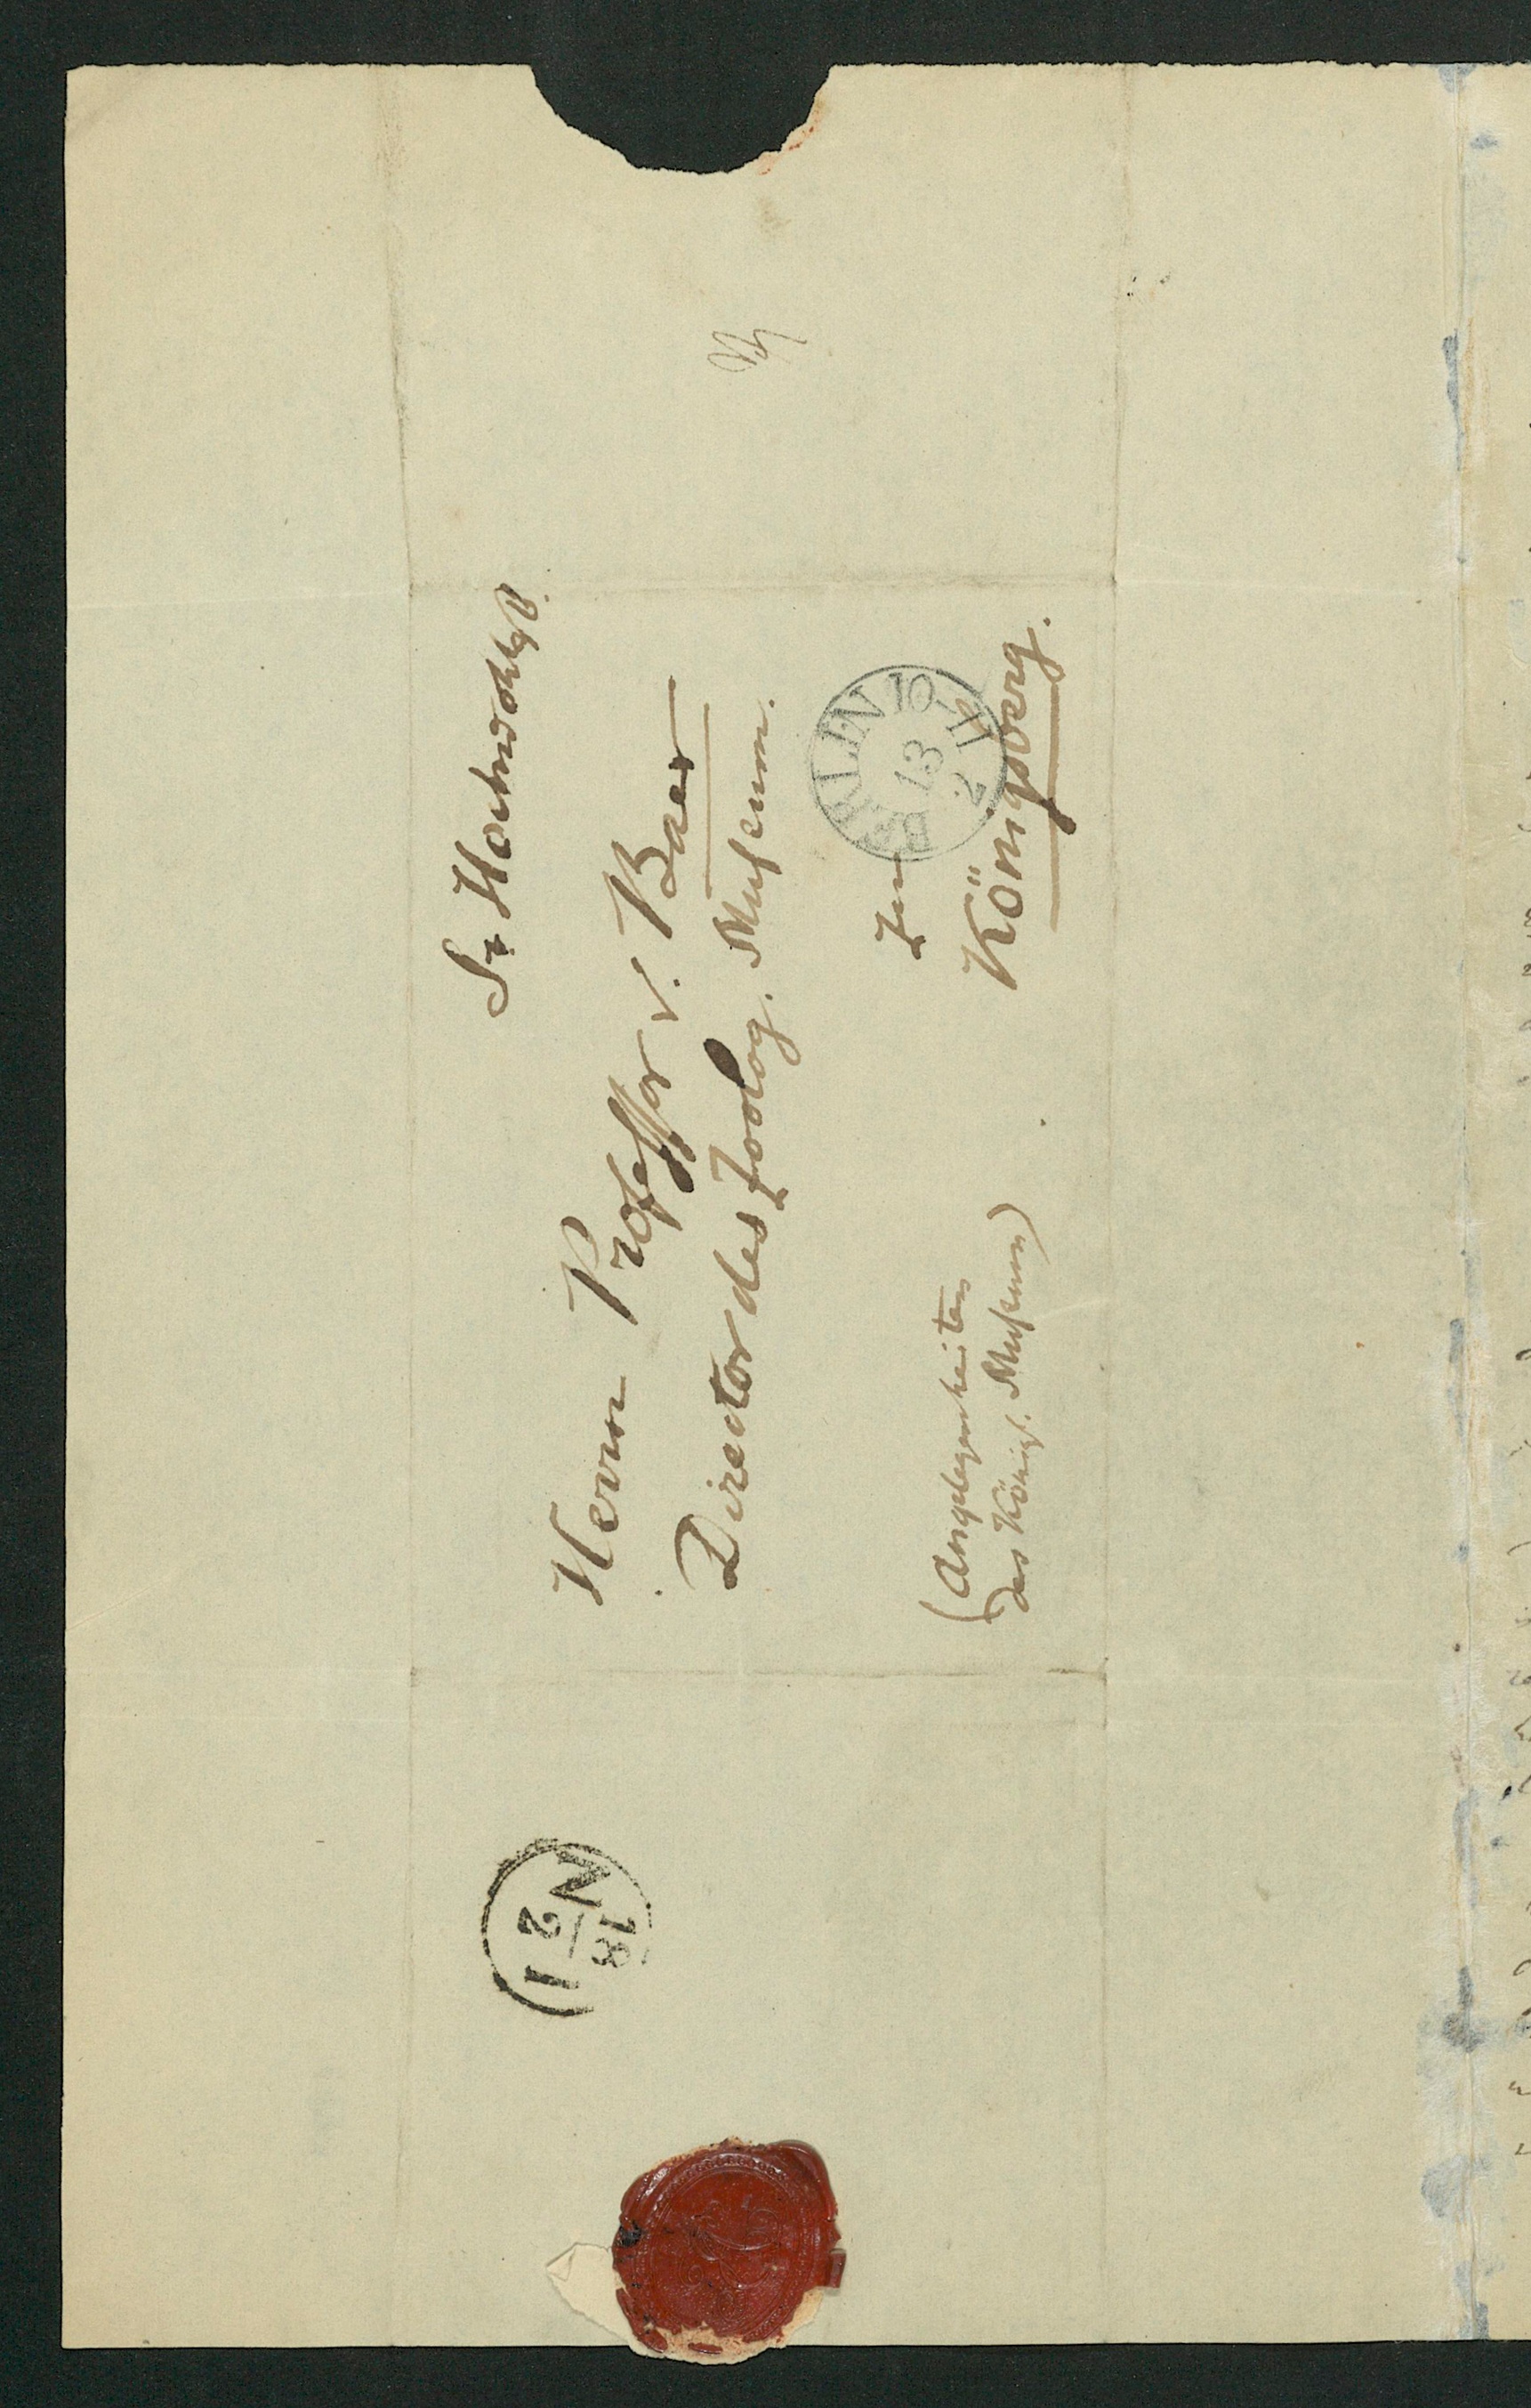 Sr Hochwohlgb.
Herrn Professor v. Baer
Director des Zoolog. Museum.
zu
Königsberg.
(Angelegenheiten
des Königl. Museum)
BERLIN 10-11
13
2
N 1
18
2